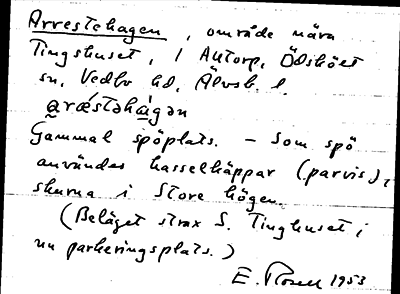 Arrestehagen, område nära
Tingshuset, i Autorp, Ödskölt
sn, Vedbo hd, Älvsb. l.
aræ̀stəhàgən
Gammal spöplats. – Som spö
användes hasselkäppar (parvis),
skurna i Store högen.
(Beläget strax S. Tinghuset,
nu parkeringsplats.)
E. Rosell 1953